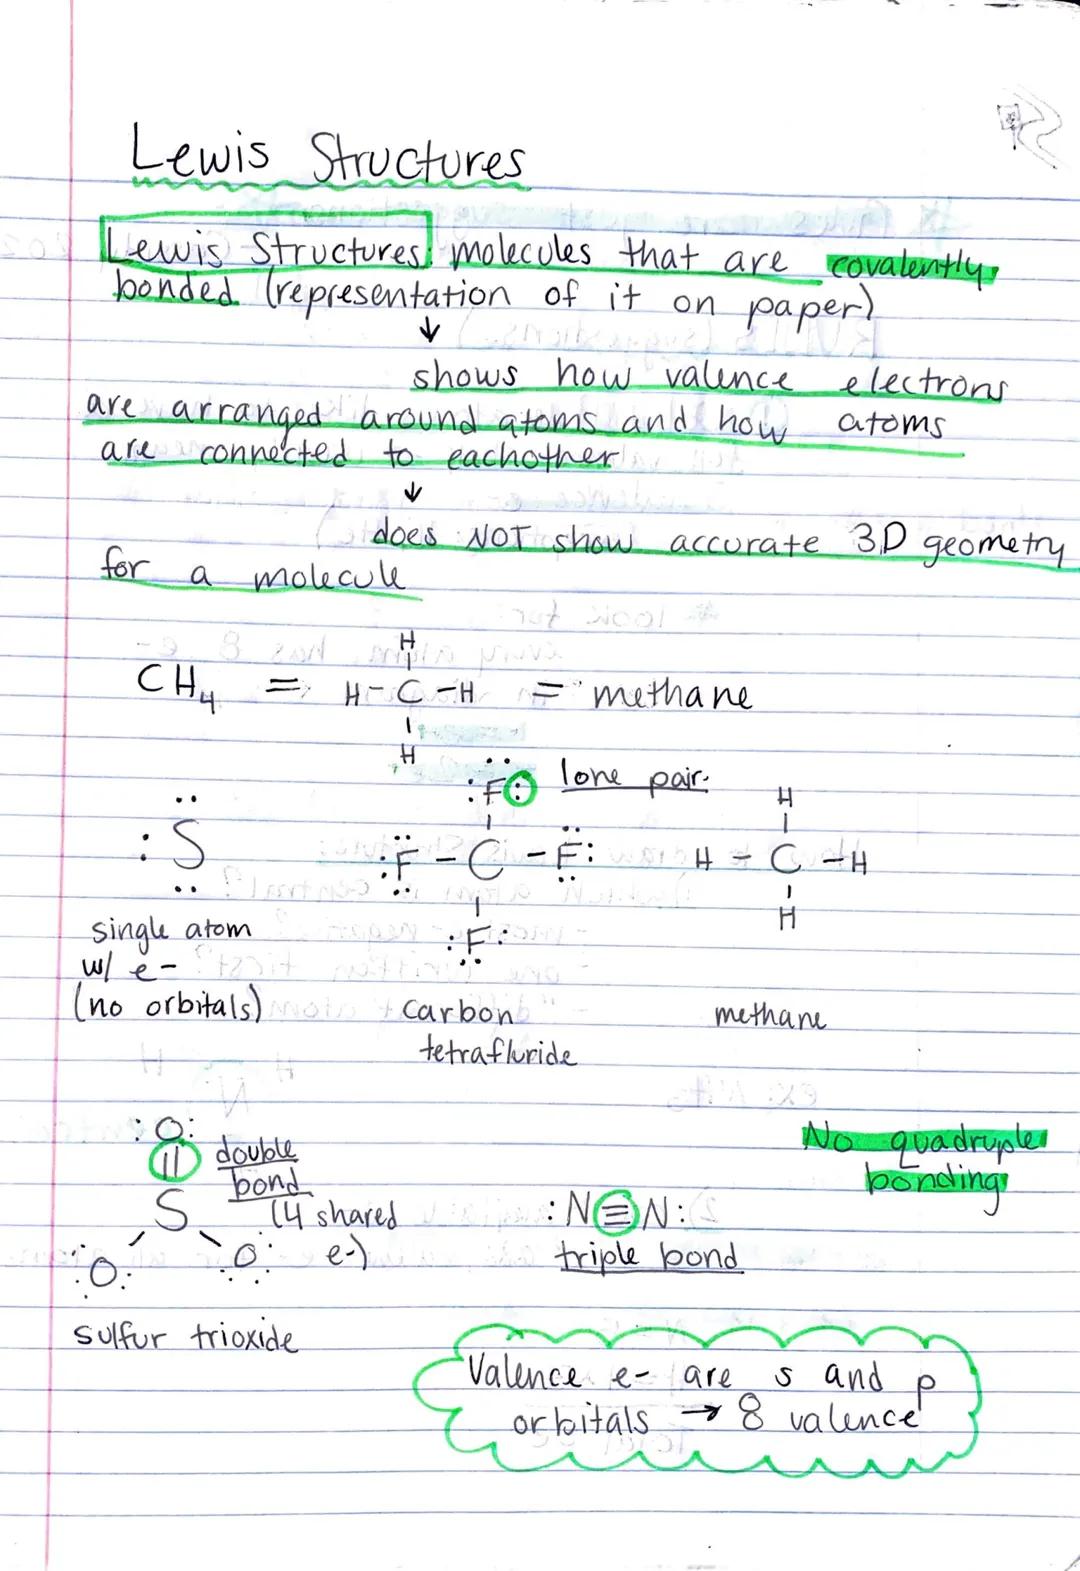 Lewis Structures
Lewis Structures: molecules that are covalently
bonded (representation of it on paper)
↓
shows how valence electrons
are arranged around atoms and how atoms
are connected to eachother
↓
does NOT show accurate 3D geometry
for a molecule
H
|
CH₄ = H-C-H = methane
|
H
:F: lone pair
|
:S :F-C-F: H-C-H
|
:F:
H
|
|
H
single atom
w/ e-
(no orbitals)
carbon
tetrafluride
methane
:O:
||
double
bond
(4 shared
e-)
S
:O: :O:
sulfur trioxide
:N≡N:
triple bond
No quadruple
bonding
Valence e- are s and p
orbitals → 8 valence